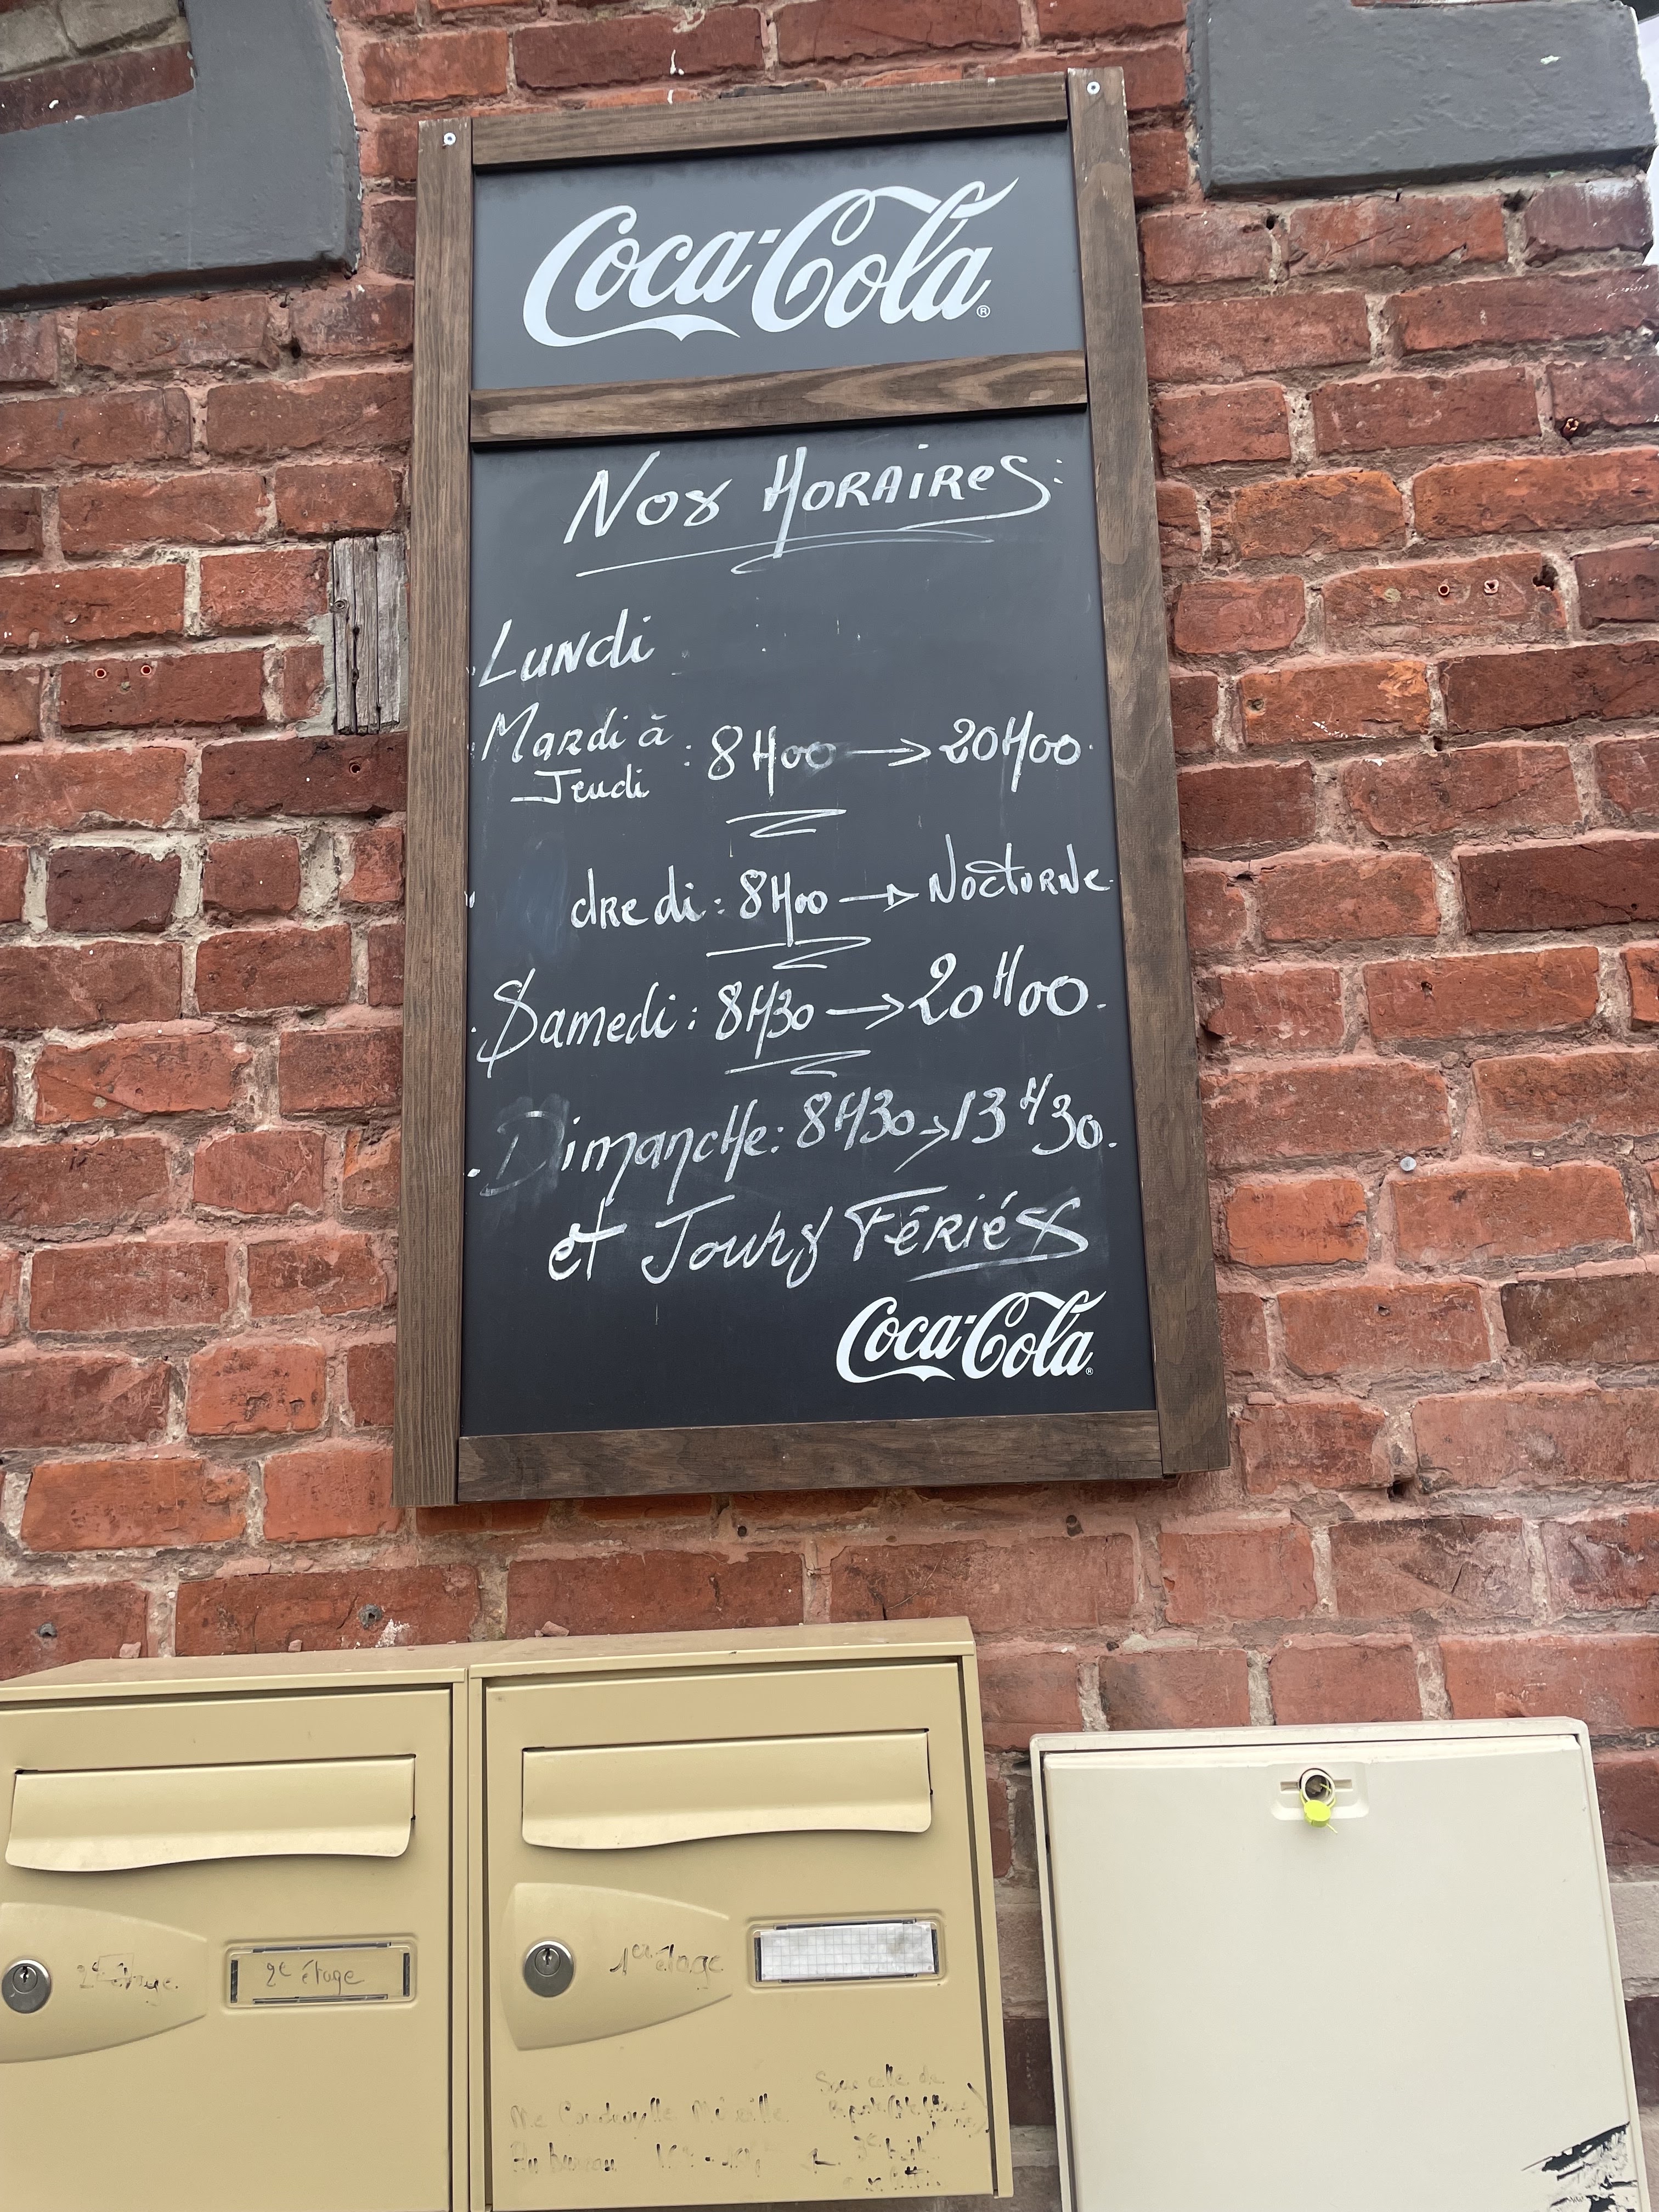 Coca-Cola®
Nos Horaires:
Lundi
Mardi à
Jeudi : 8H00 → 20H00
dredi : 8H00 → Nocturne
Samedi : 8H30 → 20H00.
Dimanche : 8H30 → 13H30.
et Jours Fériés
Coca-Cola®
2e étage
2e étage
1er étage
Au bureau